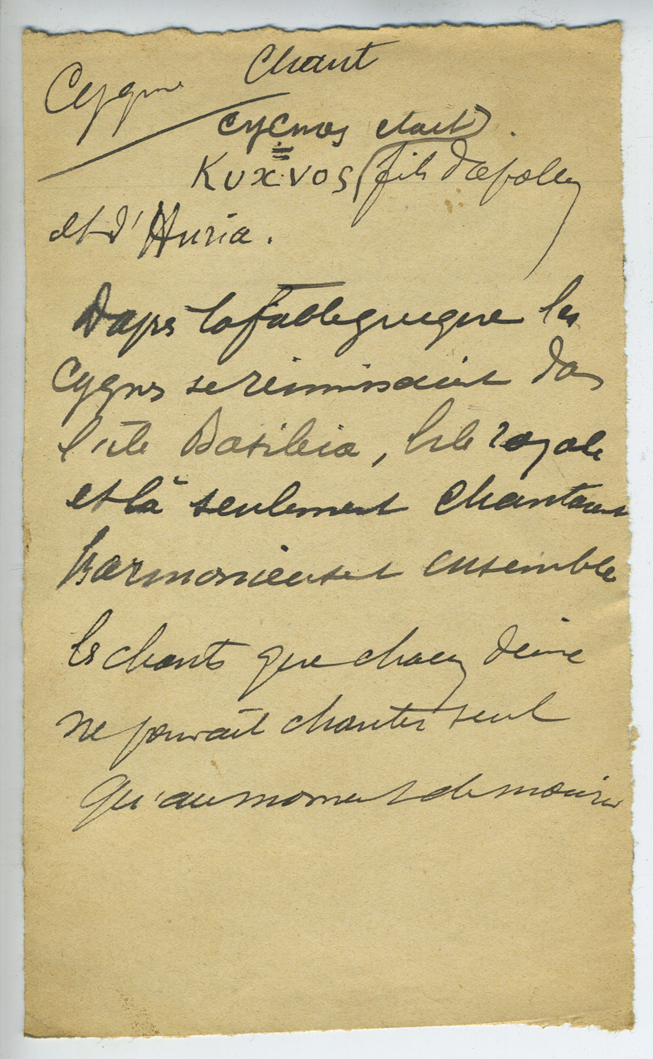 Cygne Chant
Cycnos était
Κυχνος fils d'apollon
et d'Huria.
D'après la fable grecque les
Cygnes se réunissaient dans
l'île Basileia, l'île royale
et là seulement chantaient
harmonieusement ensemble
les chants que chacun d'eux
ne pouvait chanter seul
qu'au moment de mourir